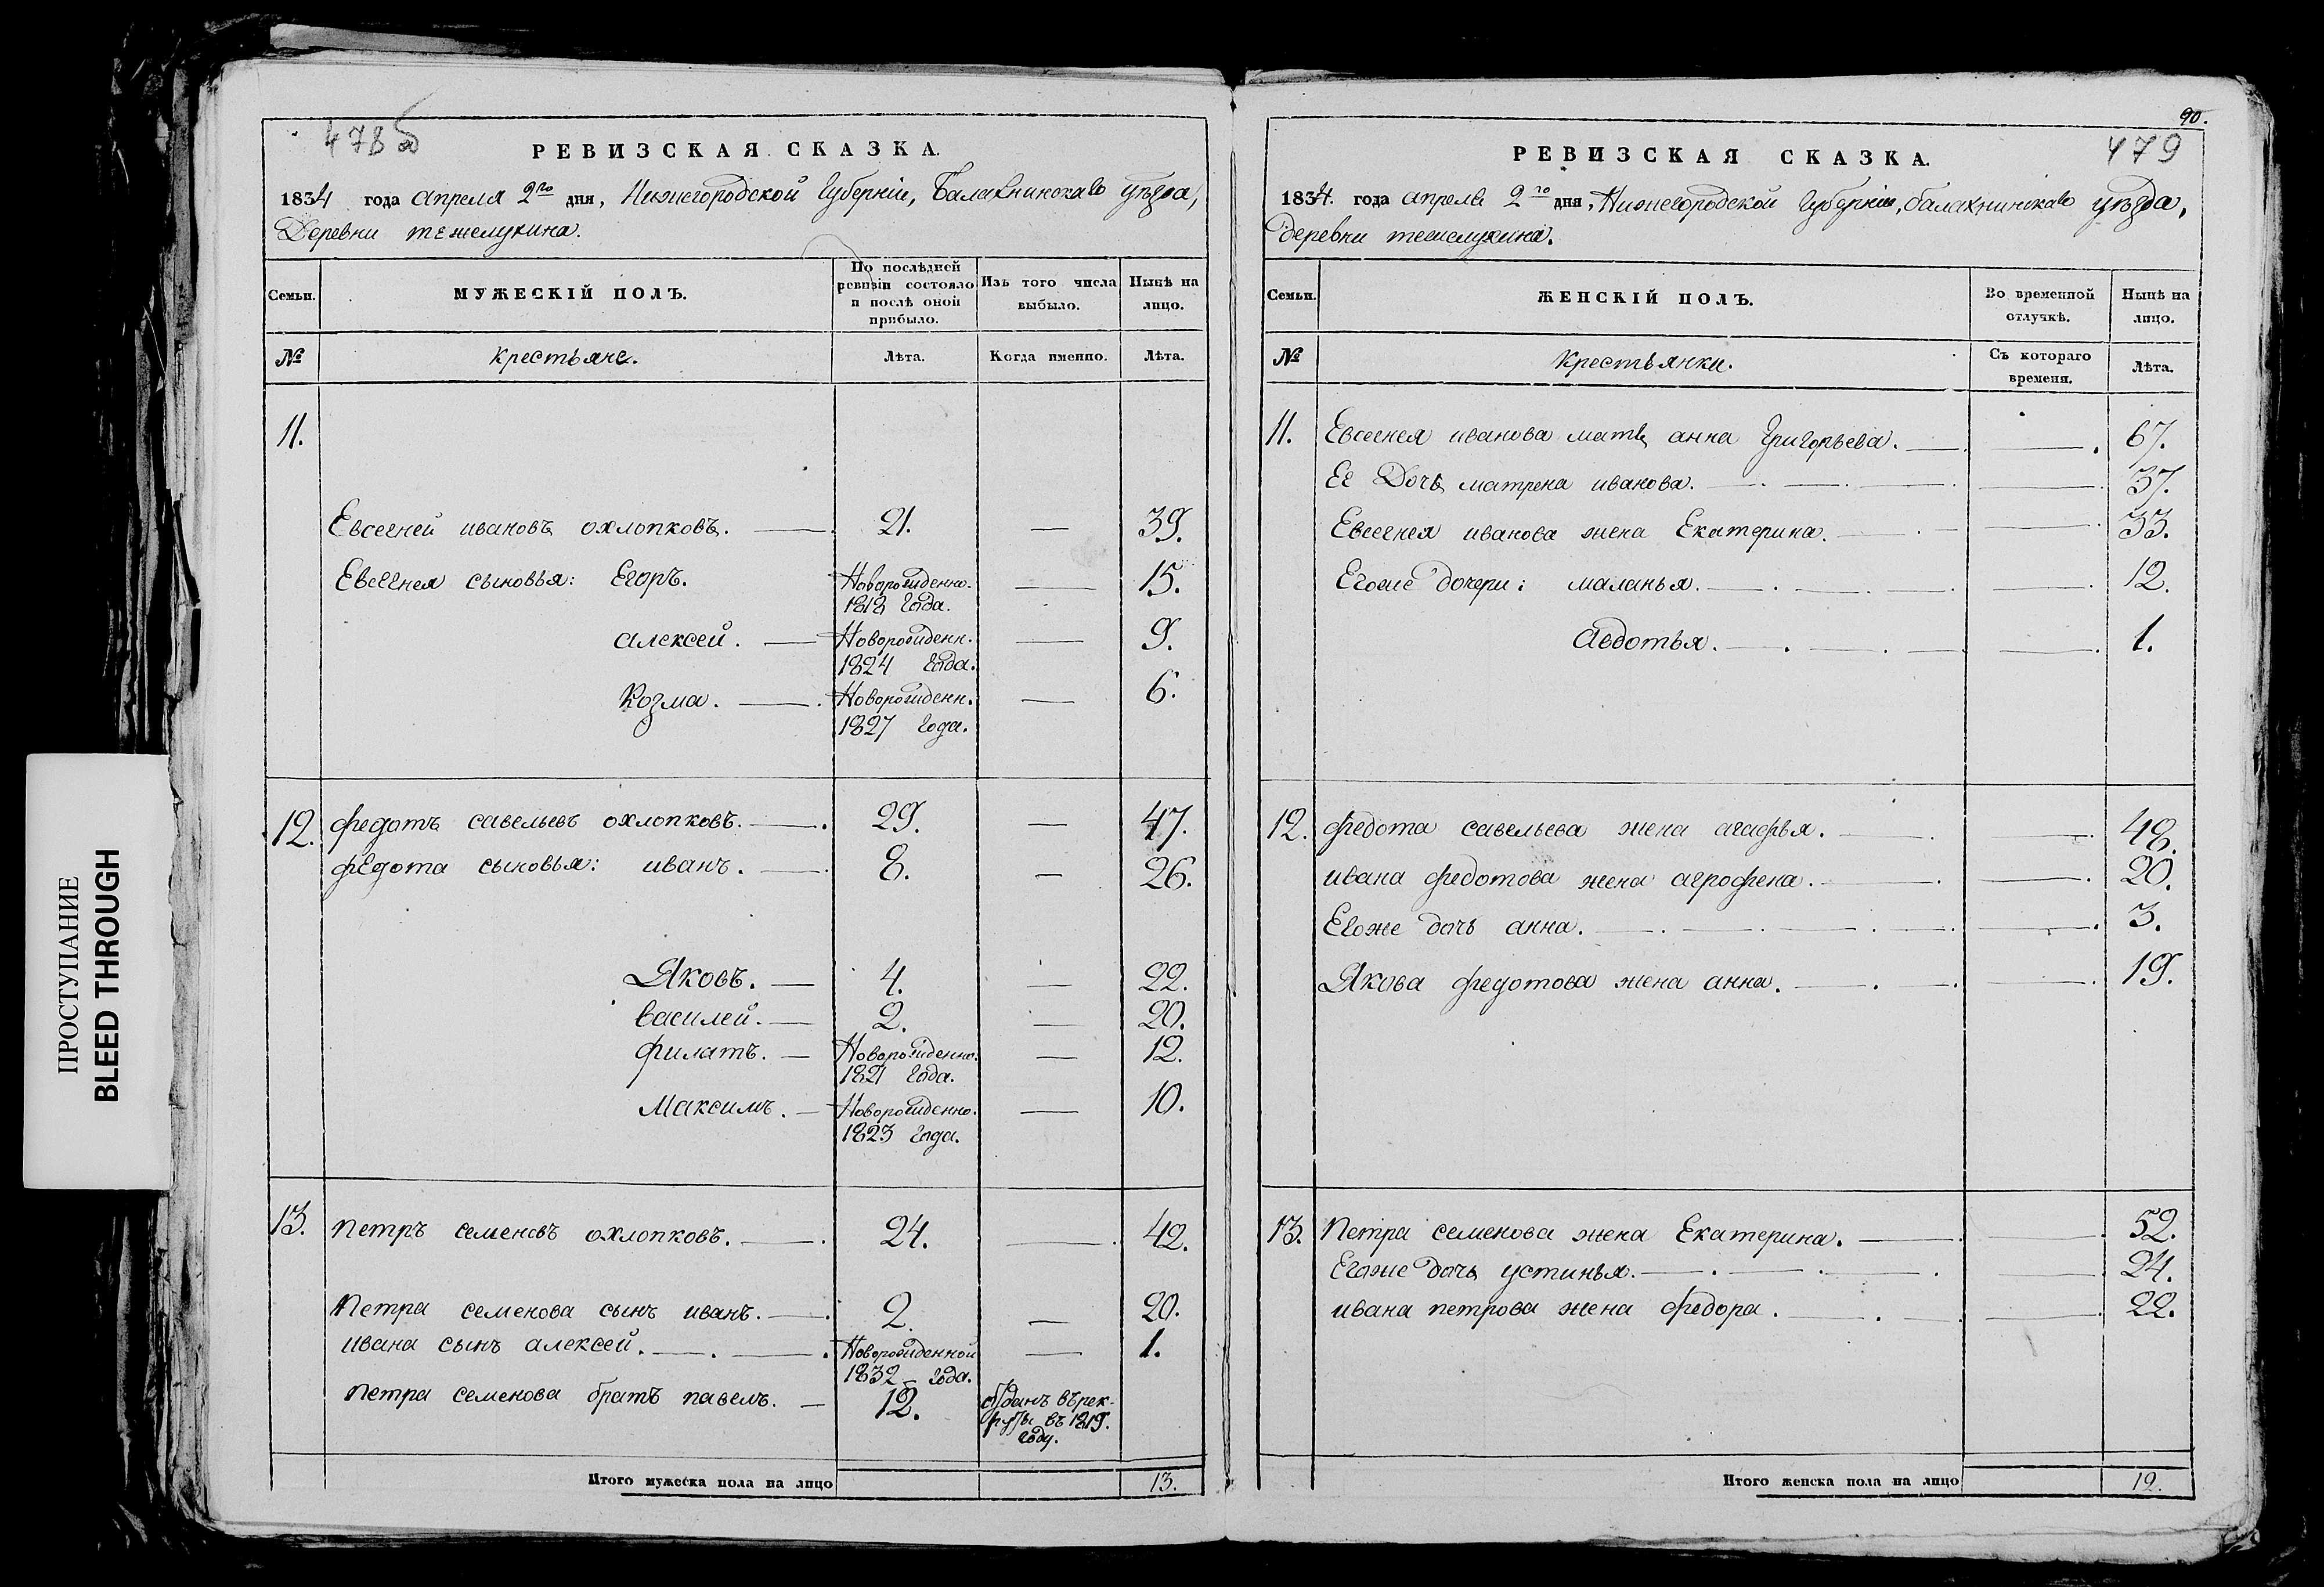 ПРОСТУПАНИЕ
BLEED THROUGH
478 б
РЕВИЗСКАЯ СКАЗКА.
1834 года апреля 2го дня, Нижегородской Губернiи, Балахнинскаго уѣзда,
Деревни тежелухина.
Семьи.
МУЖЕСКIЙ ПОЛЪ.
По послѣдней ревизiи состояло и послѣ оной прибыло.
Изъ того числа выбыло.
Нынѣ на лицо.
№
крестьяне.
Лѣта.
Когда именно.
Лѣта.
11.
Евсегней ивановъ охлопковъ. — 21. — 39.
Евсегнея сыновья: Егоръ. Новорожденно. — 15.
1818 года.
алексей. — Новорожденн. — 9.
1824 года.
Козма. — Новорожденн. — 6.
1827 года.
12. федотъ савельевъ охлопковъ. — 29. — 47.
федота сыновья: иванъ. — 8. — 26.
Яковъ. — 4. — 22.
василей. — 2. — 20.
филатъ. — Новорожденно. — 12.
1821 года.
Максимъ. — Новорожденно. — 10.
1823 года.
13. Петръ семеновъ охлопковъ. — 24. — 42.
Петра семенова сынъ иванъ. — 2. — 20.
ивана сынъ алексей. — Новорожденной — 1.
1832 года.
Петра семенова братъ павелъ. — 12. отданъ въ рек-
руты въ 1819.
году.
Итого мужеска пола на лицо 13.
90.
479
РЕВИЗСКАЯ СКАЗКА.
1834. года апреля 2го дня, Нижегородской Губернiи, балахнинскаго уѣзда,
деревни тежелухина.
Семьи.
ЖЕНСКIЙ ПОЛЪ.
Во временной отлучкѣ.
Нынѣ на лицо.
№
Крестьянки.
Съ котораго времени.
Лѣта.
11. Евсегнея иванова мать анна Григорьева. — 67.
Ее Дочь матрена иванова. — 37.
Евсегнея иванова жена Екатерина. — 33.
Егоже дочери: маланья. — 12.
Авдотья. — 1.
12. федота савельева жена агафья. — 48.
ивана федотова жена агрофена. — 20.
Егоже дочь анна. — 3.
Якова федотова жена анна. — 19.
13. Петра семенова жена Екатерина. — 52.
Егоже дочь устинья. — 24.
ивана петрова жена федора. — 22.
Итого женска пола на лицо 12.